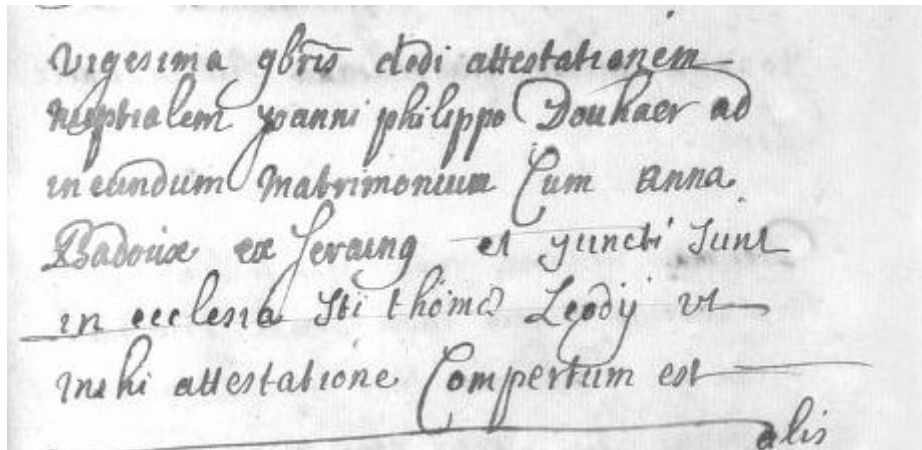 vigesima 9bris dedi attestationem
nuptialem Joanni philippo Douhaer ad
ineundum Matrimonium Cum Anna
Badoux ex Seraing et juncti sunt
in ecclesia Sti thômæ Leodij ut
mihi attestatione Compertum est
alis